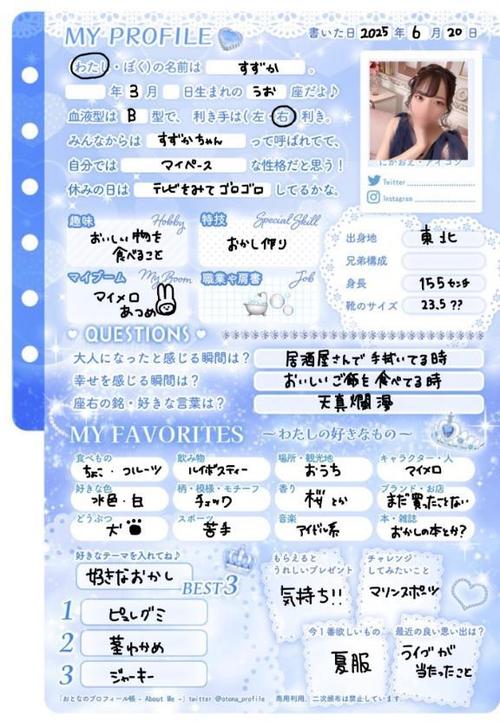 MY PROFILE
書いた日 2025 年 6 月 20 日
(わたし・ぼく)の名前は すずか 。
年 3 月 日生まれの うお 座だよ♪
血液型は B 型で、利き手は(左・右)利き。
みんなからは すずかちゃん って呼ばれてて、
自分では マイペース な性格だと思う!
休みの日は テレビをみてゴロゴロ してるかな。
にがおえ・アイコン
Twitter
Instagram
趣味 Hobby
おいしい物を
食べること
特技 Special Skill
おかし作り
マイブーム My Boom
マイメロ
あつめ
職業や肩書 Job
出身地 東北
兄弟構成
身長 155センチ
靴のサイズ 23.5??
QUESTIONS
大人になったと感じる瞬間は? 居酒屋さんで手拭いてる時
幸せを感じる瞬間は? おいしいご飯を食べてる時
座右の銘・好きな言葉は? 天真爛漫
MY FAVORITES ~わたしの好きなもの~
食べもの 飲み物 場所・観光地 キャラクター・人
ちょこ・フルーツ ルイボスティー おうち マイメロ
好きな色 柄・模様・モチーフ 香り ブランド・お店
水色・白 チェック 桜とか まだ買ったことない
どうぶつ スポーツ 音楽 本・雑誌
犬 苦手 アイドル系 おかしの本とか?
好きなテーマを入れてね♪
好きなおかし
BEST3
1 ピュレグミ
2 茎わかめ
3 ジャーキー
もらえると
うれしいプレゼント
気持ち!!
チャレンジ
してみたいこと
マリンスポーツ
今1番欲しいもの
夏服
最近の良い思い出は?
ライブが
当たったこと
「おとなのプロフィール帳 - About Me -」twitter @otona_profile 商用利用、二次頒布は禁止しています。